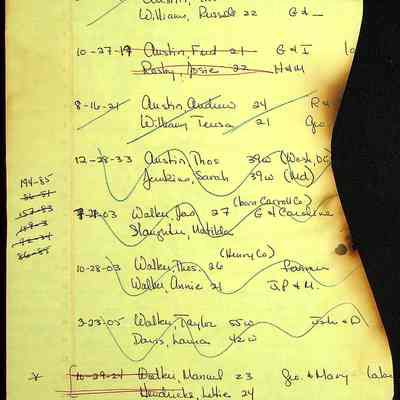 Williams, Russell 22 G & —
10-27-19 Austin, Ford 21 G & I
Rasby, Josie 22 H & M
8-16-21 Austin, Andrew 24 R &
William, Teresa 21 Geo.
12-28-33 Austin, Thos 39w (Wash, DC)
Jenkins, Sarah 39w (Md)
194-85
(born Carroll Co)
03 Walker, Jas 27 G & Caroline
Slaughter, Matilda
(Henry Co)
10-28-03 Walker, Thos. 26 Farmer
Walker, Annie 21 J.P & M.
3-23-05 Walker, Taylor 55w John & D
Davis, Laura 42w
* 10-29-24 Walker, Manuel 23 Geo. & Mary
Hendricks, Lottie 24